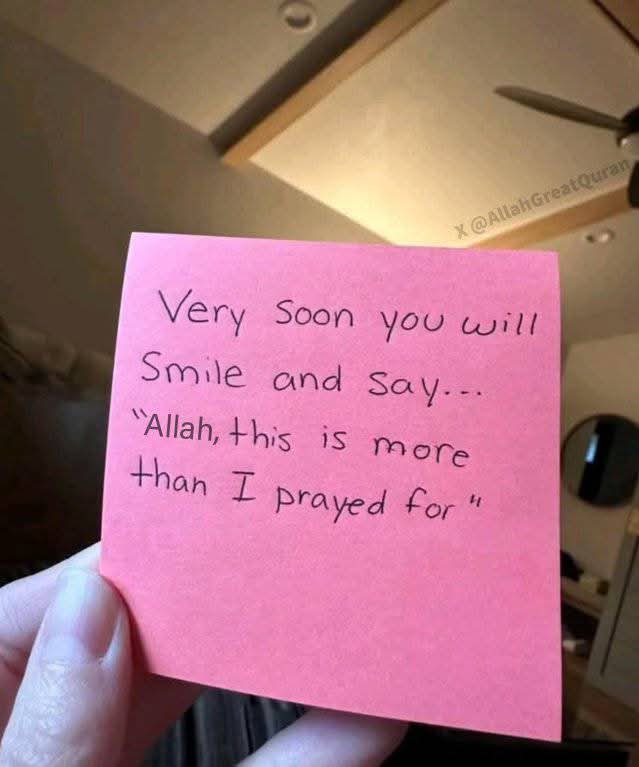 X @AllahGreatQuran
Very soon you will
Smile and say...
"Allah, this is more
than I prayed for"